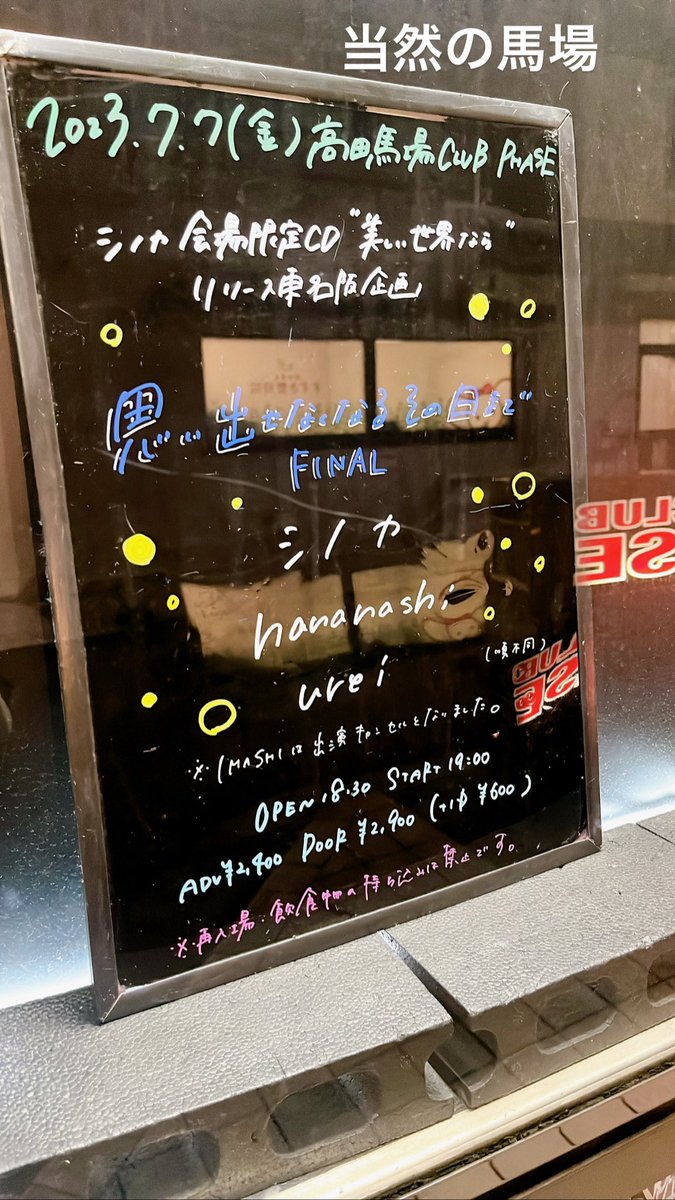 当然の馬場
2023.7.7(金)高田馬場CLUB PHASE
シノカ 会場限定CD "美しい世界なら"
リリース東名阪企画
思い出せなくなるその日まで
FINAL
シノカ
hananashi
urei
(順不同)
※IMASHIは出演キャンセルとなりました。
OPEN 18:30 START 19:00
ADV ¥2,400 DOOR ¥2,900 (+1D ¥600)
※再入場・飲食物の持ち込みは禁止です。
CLUB
SE
CLUB
SE